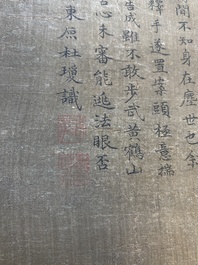 間不知身在塵世也余
釋手遂置案頭極意摹
告成雖不敢步武黃鶴山
心未審能逃法眼否
東原杜瓊識